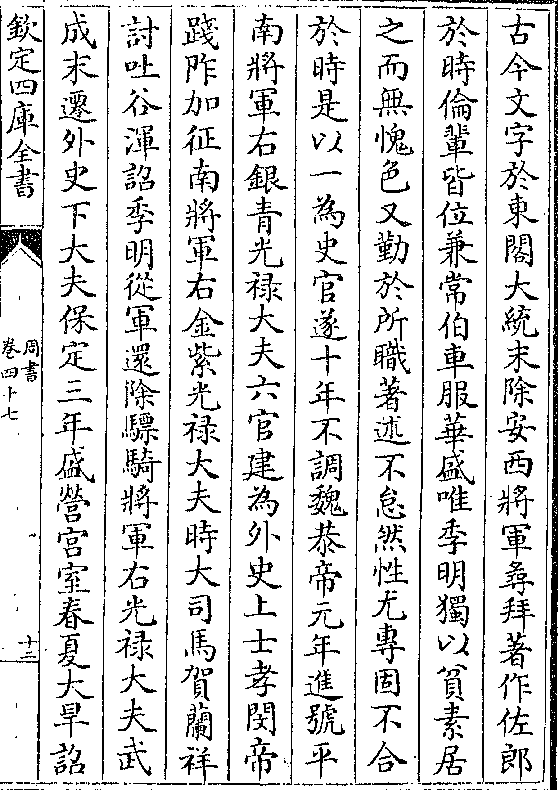 古今文字於東閣大統末除安西將軍尋拜著作佐郎
於時倫輩皆位兼常伯車服華盛唯季明獨以貧素居
之而無愧色又勤於所職著述不怠然性尤專固不合
於時是以一為史官遂十年不調魏恭帝元年進號平
南將軍右銀青光禄大夫六官建為外史上士孝閔帝
踐阼加征南將軍右金紫光禄大夫時大司馬賀蘭祥
討吐谷渾詔季明從軍還除驃騎將軍右光禄大夫武
成末遷外史下大夫保定三年盛營宫室春夏大旱詔
欽定四庫全書
周書
卷四十七
十三